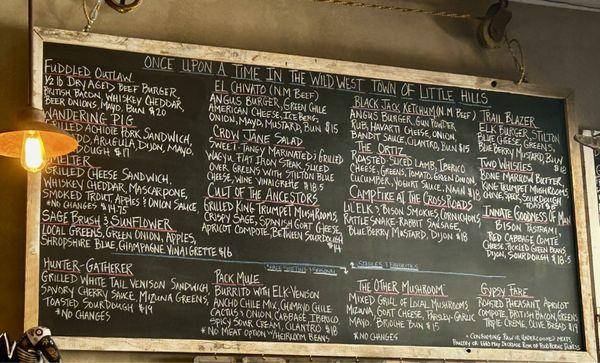 ONCE UPON A TIME IN THE WILD WEST TOWN OF LITTLE HILLS
FUDDLED OUTLAW
1/2 LB DRY AGED BEEF BURGER,
BRITISH BACON, WHISKEY CHEDDAR,
BEER ONIONS, MAYO, BUN $20
WANDERING PIG
GRILLED ACHIOTE PORK SANDWICH,
ARUGULA, DIJON, MAYO,
SMELTER
GRILLED CHEESE SANDWICH,
WHISKEY CHEDDAR, MASCARPONE,
SMOKED TROUT APPLES & ONION SAUCE
*NO CHANGES $14.75
SAGE BRUSH & SUNFLOWER
LOCAL GREENS, GREEN ONION, APPLES,
SHROPSHIRE BLUE, CHAMPAGNE VINAIGRETTE $16
HUNTER-GATHERER
GRILLED WHITE TAIL VENISON SANDWICH,
SAVORY CHERRY SAUCE, MIZUNA GREENS,
TOASTED SOURDOUGH $19
*NO CHANGES
EL CHIVATO (N.M BEEF)
ANGUS BURGER, GREEN CHILE
AMERICAN CHEESE, ICEBERG,
ONION, MAYO, MUSTARD, BUN $15
CROW JANE SALAD
SWEET-TANGY MARINATED & GRILLED
WAGYU, FLAT IRON STEAK SLICED
OVER GREENS WITH STILTON BLUE
CHEESE, WINE VINAIGRETTE $18.5
CULT OF THE ANCESTORS
GRILLED KING TRUMPET MUSHROOMS,
CRISPY SAGE, SPANISH GOAT CHEESE,
APRICOT COMPOTE, BETWEEN SOURDOUGH
$14
PACK MULE
BURRITO WITH ELK-VENISON
ANCHO CHILE MIX, CHIMAYO CHILE
CACTUS & ONION, CABBAGE, IBERICO
SPICY SOUR CREAM, CILANTRO $18
*NO MEAT OPTION W/HEIRLOOM BEANS
BLACK JACK KETCHUM (N.M BEEF)
ANGUS BURGER, GUN POWDER
RUB, HAVARTI CHEESE, ONION,
BANDIT SAUCE, CILANTRO, BUN $15
THE ORTIZ
ROASTED SLICED LAMB, IBERICO
CHEESE, GREENS, TOMATO, GREEN ONION
CUCUMBER, YOGURT SAUCE, NAAN $18
CAMPFIRE AT THE CROSSROADS
LIL ELK & BISON SMOKIES, CORNICHONS,
RATTLE SNAKE-RABBIT SAUSAGE,
BLUE BERRY MUSTARD, DIJON $18
THE OTHER MUSHROOM
MIXED GRILL OF LOCAL MUSHROOMS
MIZUNA, GOAT CHEESE, PARSLEY-GARLIC
MAYO, BRIOCHE BUN $15
*NO CHANGES
TRAIL BLAZER
ELK BURGER, STILTON
BLUE CHEESE, GREENS,
BLUE BERRY MUSTARD, BUN
TWO WHISTLES
BONE MARROW BUTTER
KING TRUMPET MUSHROOMS,
SOURDOUGH
INNATE GOODNESS OF MAN
BISON PASTRAMI,
RED CABBAGE, COMTE
CHEESE, PICKLED GREEN BEANS
DIJON, SOURDOUGH $18.5
GYPSY FARE
ROASTED PHEASANT, APRICOT
COMPOTE, BRITISH BACON, GREENS
TRIPLE CRÈME, OLIVE BREAD $19
*CONSUMING RAW OR UNDERCOOKED MEATS,